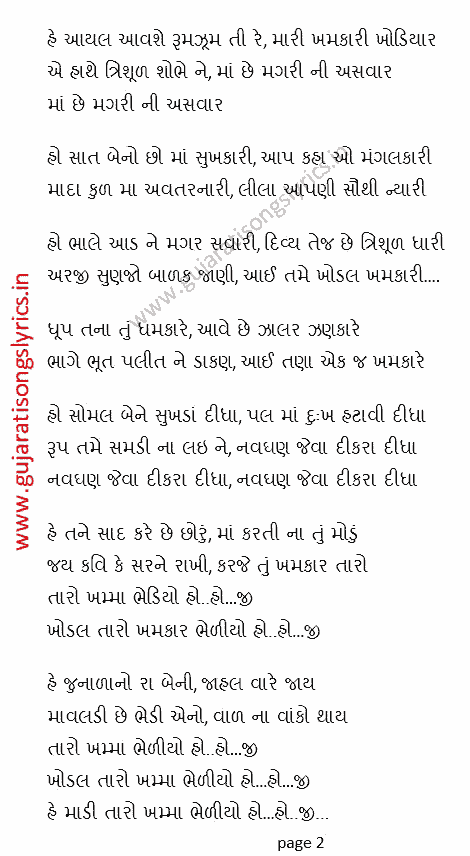 હે આયલ આવશે રૂમઝૂમ તી રે, મારી ખમકારી ખોડિયાર
એ હાથે ત્રિશૂળ શોભે ને, માં છે મગરી ની અસવાર
માં છે મગરી ની અસવાર
હો સાત બેનો છો માં સુખકારી, આપ કહા ઓ મંગલકારી
માદા કુળ મા અવતરનારી, લીલા આપણી સૌથી ન્યારી
હો ભાલે આડ ને મગર સવારી, દિવ્ય તેજ છે ત્રિશૂળ ધારી
અરજી સુણજો બાળક જાણી, આઈ તમે ખોડલ ખમકારી....
ધૂપ તના તું ધમકારે, આવે છે ઝાલર ઝણકારે
ભાગે ભૂત પલીત ને ડાકણ, આઈ તણા એક જ ખમકારે
હો સોમલ બેને સુખડાં દીધા, પલ માં દુઃખ હટાવી દીધા
રૂપ તમે સમડી ના લઇ ને, નવઘણ જેવા દીકરા દીધા
નવઘણ જેવા દીકરા દીધા, નવઘણ જેવા દીકરા દીધા
હે તને સાદ કરે છે છોરું, માં કરતી ના તું મોડું
જય કવિ કે સરને રાખી, કરજે તું ખમકાર તારો
તારો ખમ્મા ભેડિયો હો..હો...જી
ખોડલ તારો ખમકાર ભેળીયો હો..હો...જી
હે જુનાળાનો રા બેની, જાહલ વારે જાય
માવલડી છે ભેડી એનો, વાળ ના વાંકો થાય
તારો ખમ્મા ભેળીયો હો..હો...જી
ખોડલ તારો ખમ્મા ભેળીયો હો...હો...જી
હે માડી તારો ખમ્મા ભેળીયો હો...હો..જી...
page 2
www.gujaratisongslyrics.in
www.gujaratisongslyrics.in